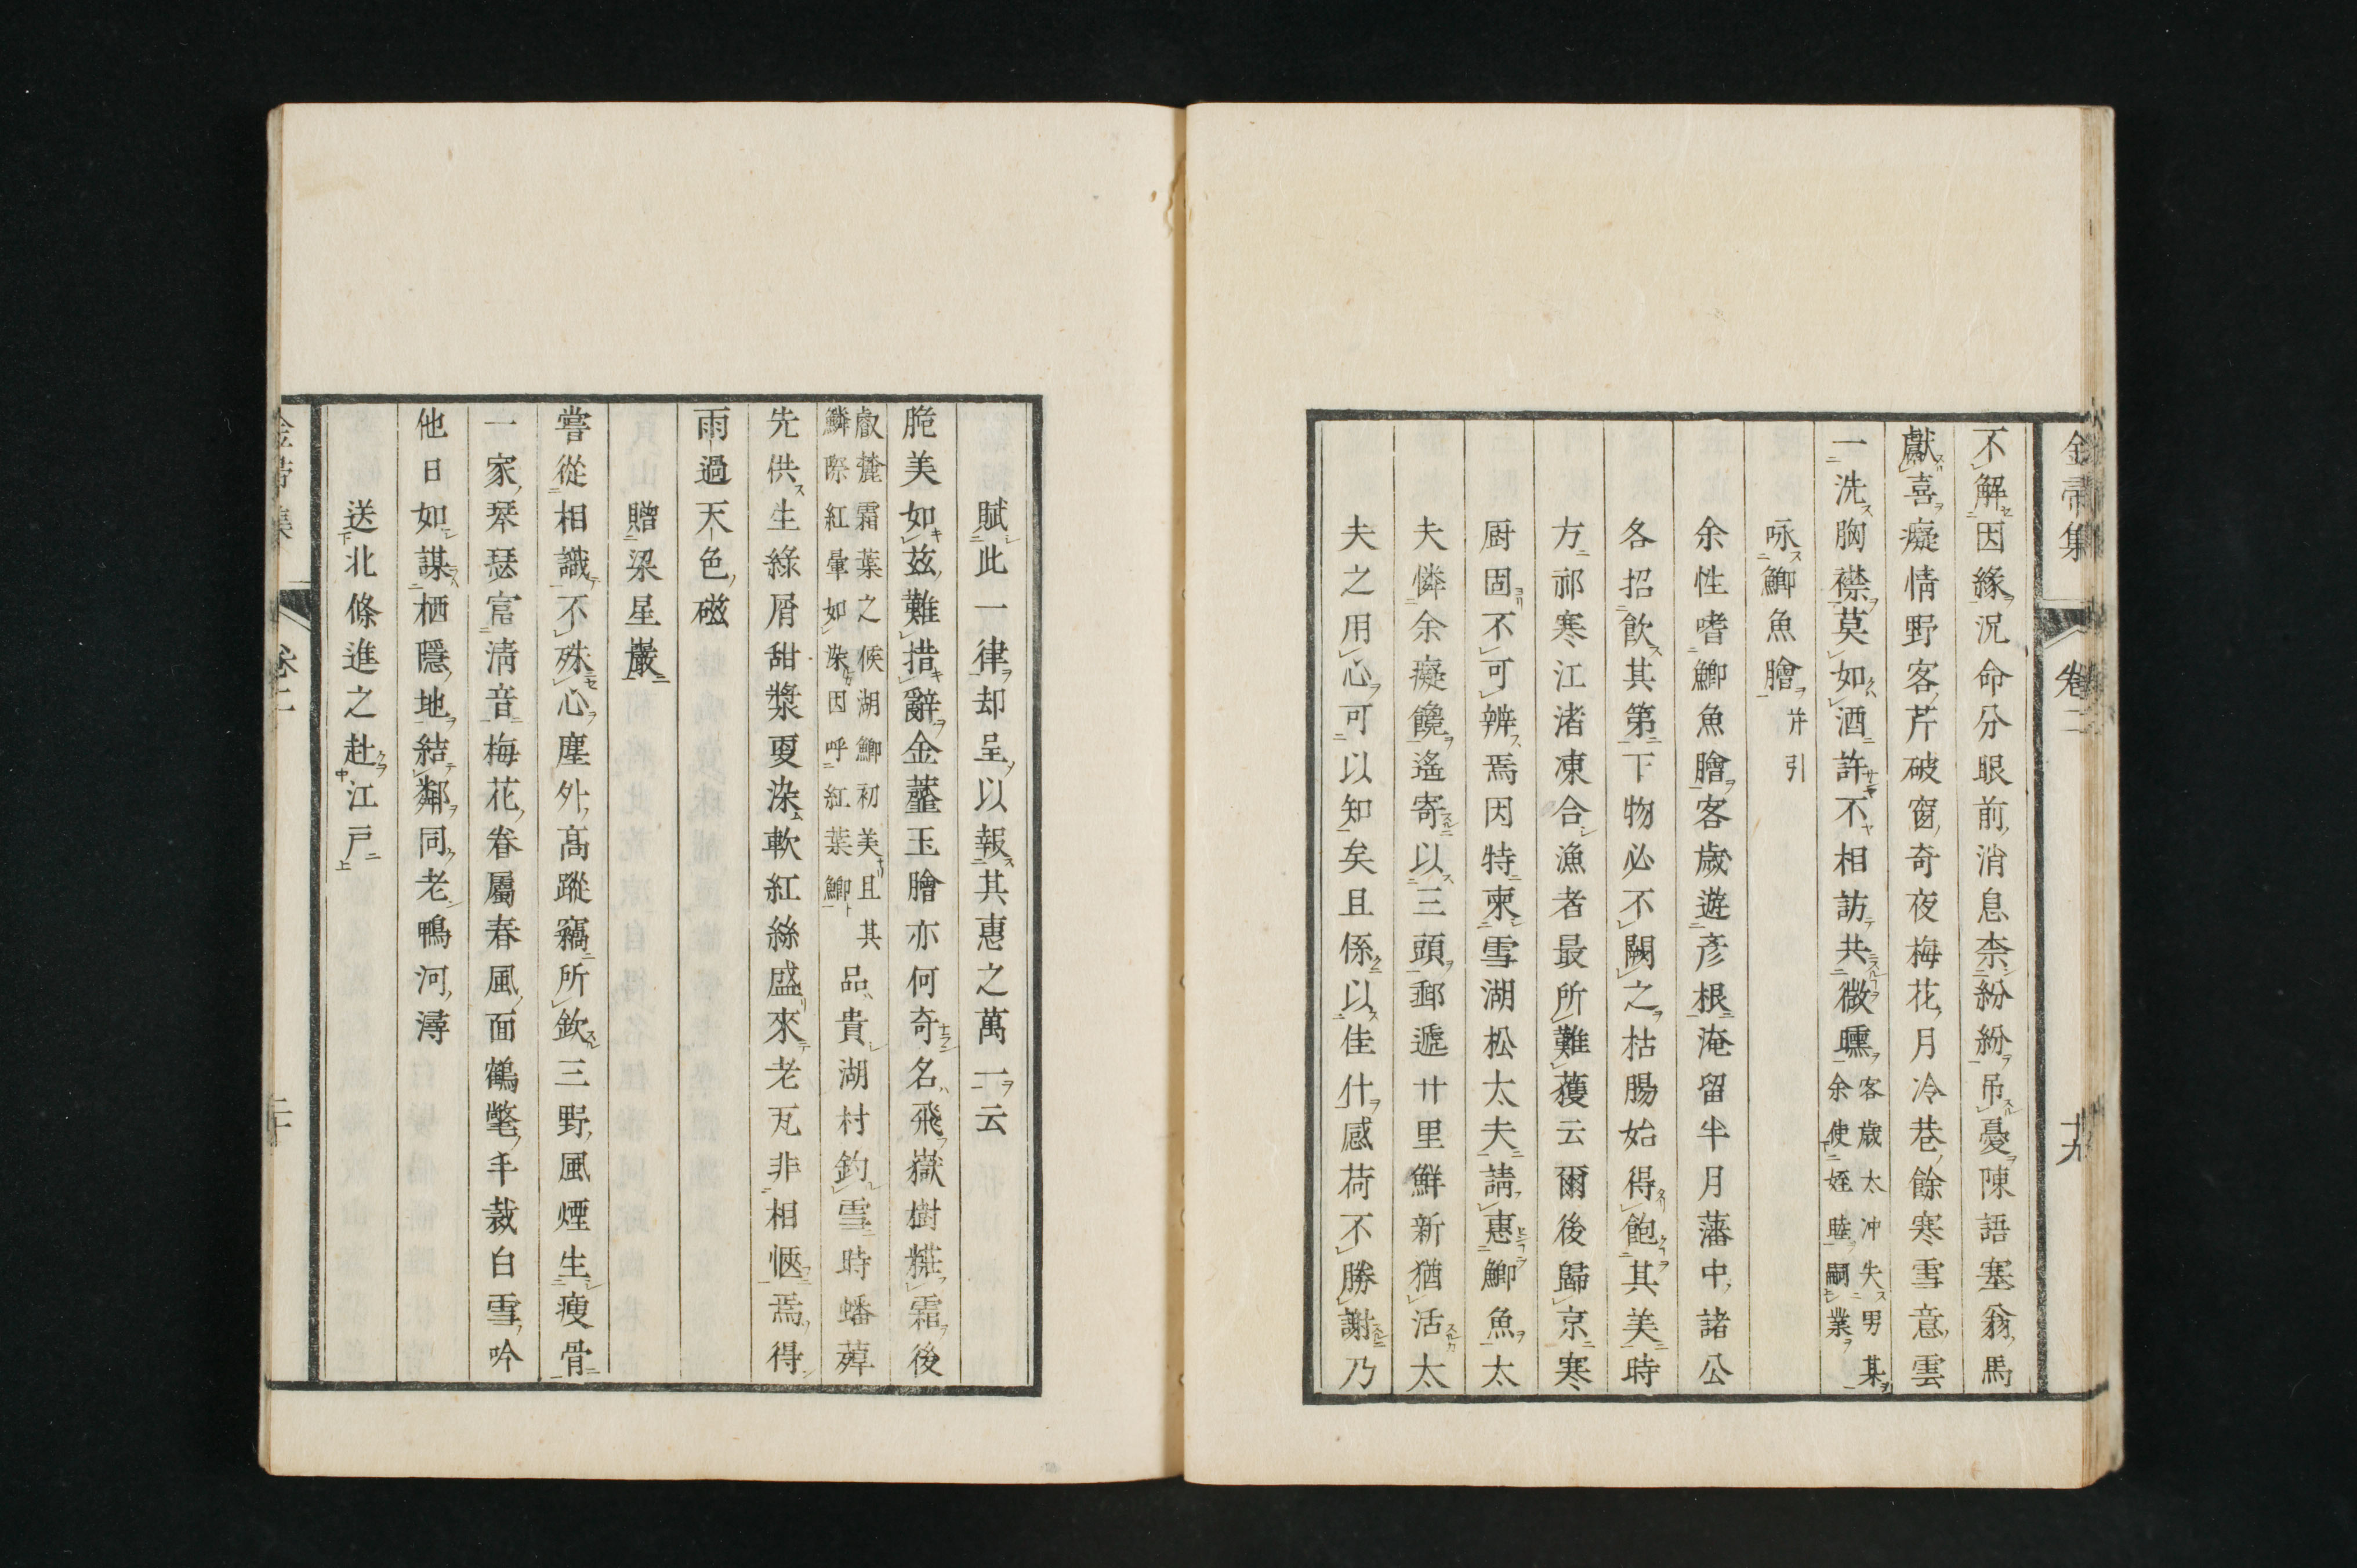 金帚集　卷二　十九
不解因緣況命分眼前消息柰紛紛吊憂陳語塞翁馬
獻喜癡情野客芹破窗奇夜梅花月冷巷餘寒雪意雲
一洗胸襟莫如酒許不相訪共微曛
客歲太冲失男某
余使姪睦嗣業
咏鯽魚膾 并引
余性嗜鯽魚膾客歲遊彥根淹留半月藩中諸公
各招飲其第下物必不闕之枯腸始得飽其美時
方祁寒江渚凍合漁者最所難獲云爾後歸京寒
厨固不可辨焉因特柬雪湖松太夫請惠鯽魚太
夫憐余癡饞遙寄以三頭郵遞廿里鮮新猶活太
夫之用心可以知矣且係以佳什感荷不勝謝乃
賦此一律却呈以報其惠之萬一云
脆美如玆難措辭金虀玉膾亦何奇名飛嶽樹糚霜後
叡麓霜葉之候湖鯽初美且其
鱗際紅暈如染因呼紅葉鯽
品貴湖村釣雪時蟠薄
先供生綠屑甜漿更染軟紅絲盛來老瓦非相愜焉得
雨過天色磁
贈梁星巖
嘗從相識不殊心塵外高蹤竊所欽三野風煙生瘦骨
一家琴瑟富清音梅花眷屬春風面鶴氅手裁白雪吟
他日如謀栖隱地結鄰同老鴨河潯
送北條進之赴江戶